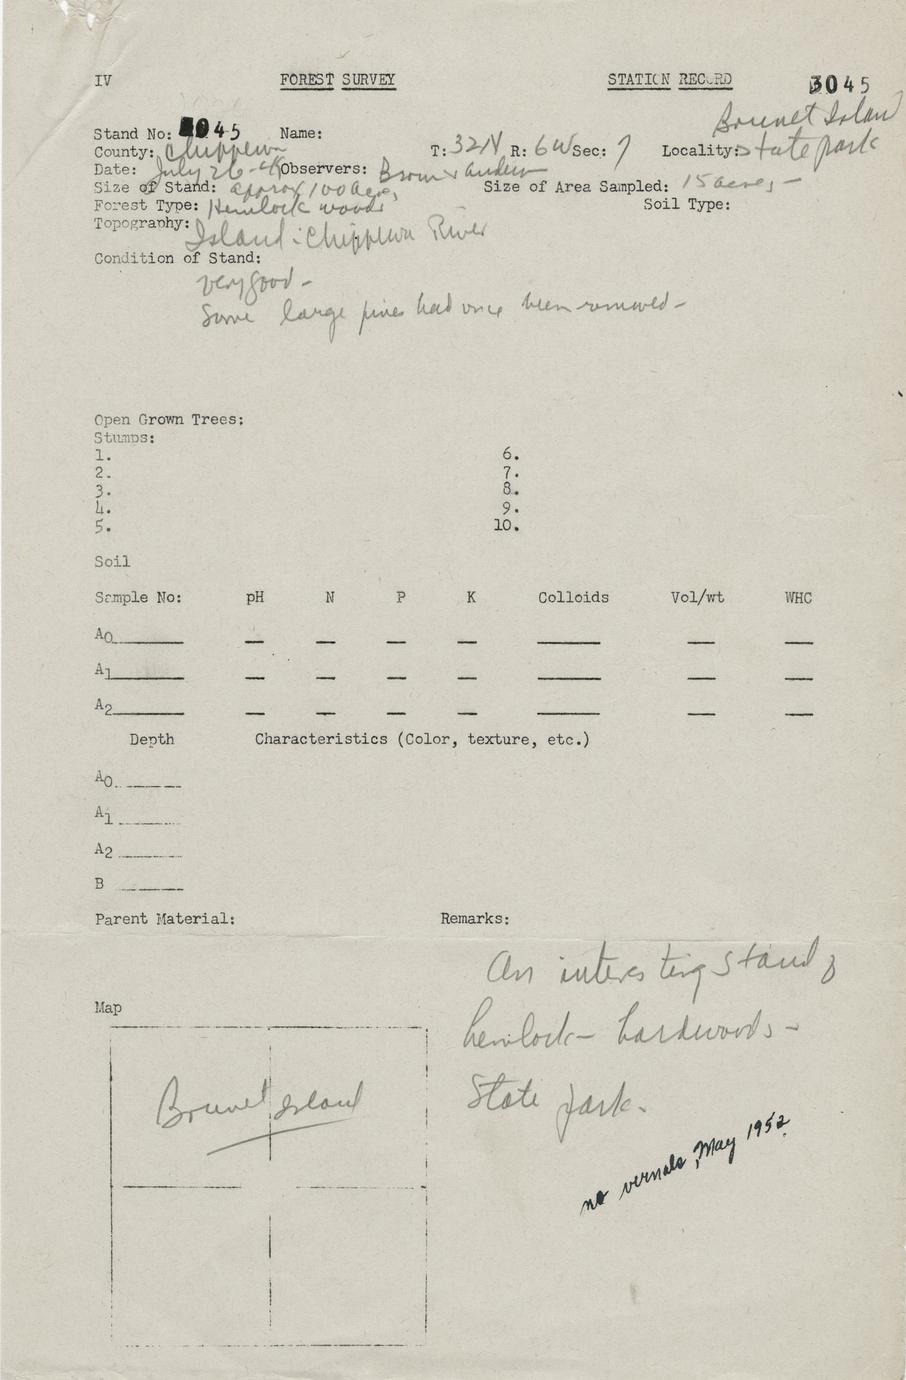 IV FOREST SURVEY STATION RECORD 3045
Brunet Island
Stand No: 3045 Name:
County: Chippewa T: 32N R: 6W Sec: 7 Locality: State park
Date: July 26 - Observers: Brown &
Size of Stand: approx 100 acres Size of Area Sampled: 15 acres -
Forest Type: Hemlock woods Soil Type:
Topography: Island - Chippewa River
Condition of Stand:
very good -
Some large pines had once been removed -
Open Grown Trees:
Stumps:
1. 6.
2. 7.
3. 8.
4. 9.
5. 10.
Soil
Sample No: pH N P K Colloids Vol/wt WHC
A0
A1
A2
Depth Characteristics (Color, texture, etc.)
A0
A1
A2
B
Parent Material: Remarks:
An interesting stand of
hemlock - hardwoods -
State park.
no vernals, May 1952.
Map
Brunet Island